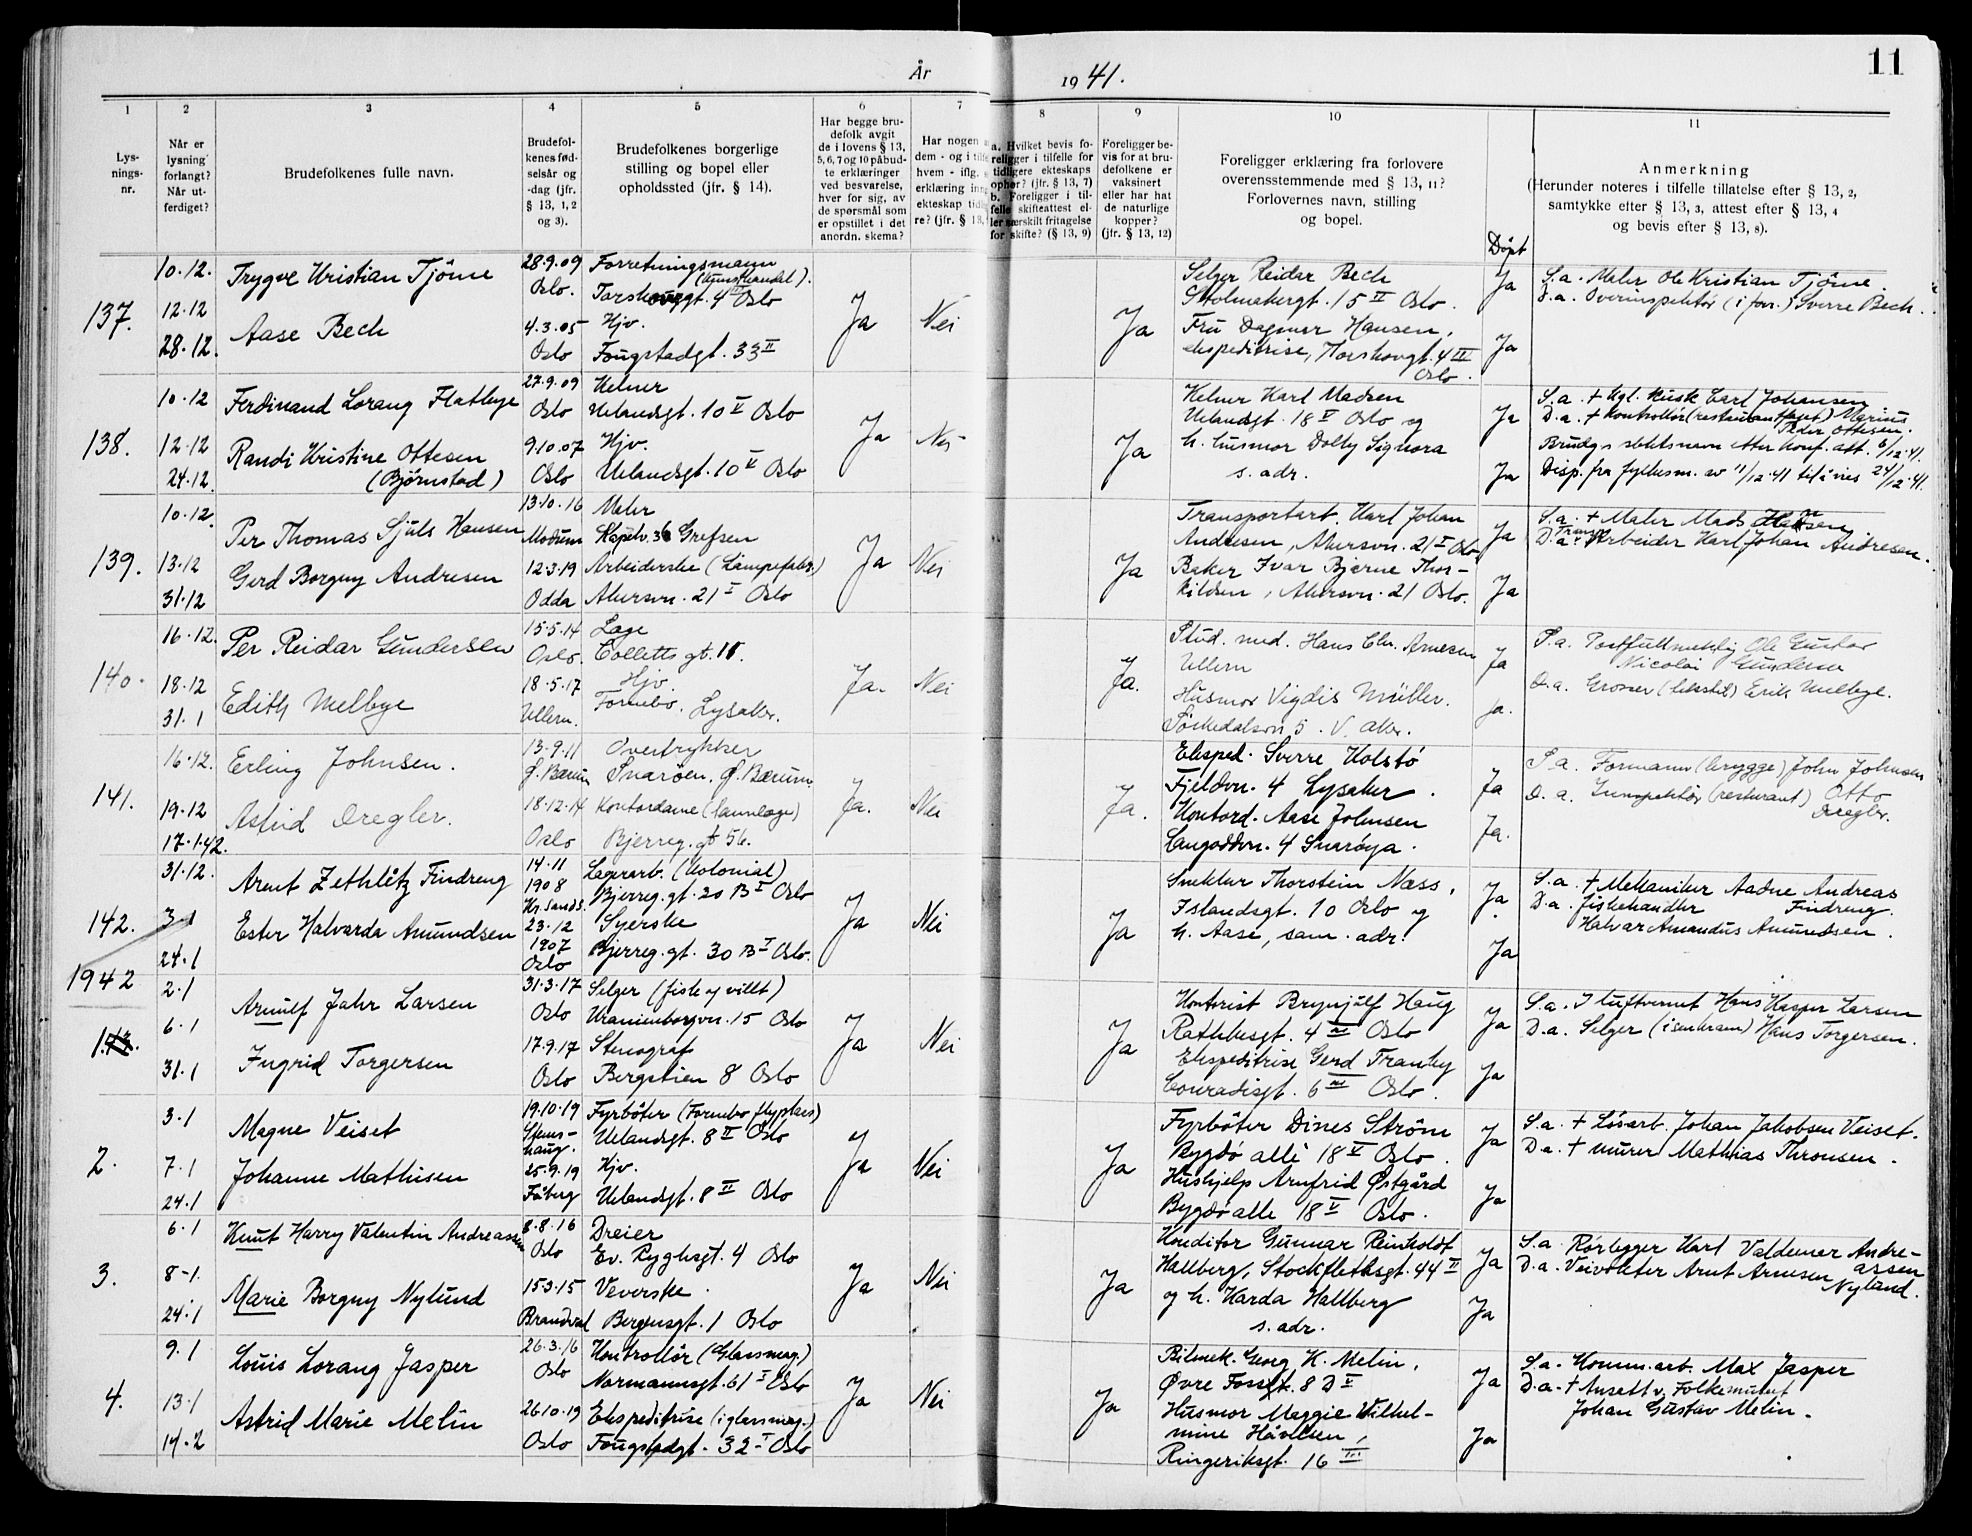 År 1941.
11
1
2
3
4
5
6
7
8
9
10
11
Lys-
nings-
nr.
Når er
lysning
forlangt?
Når ut-
ferdiget?
Brudefolkenes fulle navn.
Brudefol-
kenes fød-
selsår og
-dag (jfr.
§ 13, 1, 2
og 3).
Brudefolkenes borgerlige
stilling og bopel eller
opholdssted (jfr. § 14).
Har begge bru-
defolk avgit
de i lovens § 13,
5, 6, 7 og 10 påbud-
te erklæringer
ved besvarelse,
hver for sig, av
de spørsmål som
er opstillet i det
anordn. skema?
Har nogen
dem - og i
hvem - iflg.
erklæring
ekteskap
re? (jfr. § 13,
a. Hvilket bevis fo-
religger i tilfelle for
tidligere ekteskaps
ophør? (jfr. § 13, 7)
b. Foreligger i til-
felle skifteattest el-
ler særskilt fritagelse
for skifte? (§ 13, 9)
Foreligger be-
vis for at bru-
defolkene er
vaksinert
eller har hat
de naturlige
kopper?
(jfr. § 13, 12)
Foreligger erklæring fra forlovere
overensstemmende med § 13, 11?
Forlovernes navn, stilling
og bopel.
Døpt
Anmerkning
(Herunder noteres i tilfelle tillatelse efter § 13, 2,
samtykke efter § 13, 3, attest efter § 13, 4
og bevis efter § 13, 8).
137.
10.12.
12.12
28.12.
Trygve Kristian Tjöme
Aase Bech
28.9.09
Oslo.
4.3.05
Oslo
Forretningsmann
(Kunsthandel).
Torshovgt. 4 III Oslo
Hjv.
Fougstadgt. 33 II
Ja
Nei
Ja
Selger Reidar Bech
Stolmakergt. 15 II Oslo.
Fru Dagmar Hansen,
ekspeditrise, Torshovgt. 4 III
Oslo.
Ja
Ja
S.a. Maler Ole Kristian Tjöme.
D.a. Overinspektör (i forr.) Sverre Bech.
138.
10.12
12.12
24.12.
Ferdinand Lorang Flatbye
Randi Kristine Ottesen
(Bjørnstad)
27.9.09
Oslo
9.10.07
Oslo
Kelner
Uelandsgt. 10 V Oslo
Hjv.
Uelandsgt. 10 V Oslo
Ja
Nei
Ja
Kelner Karl Madsen
Uelandsgt. 18 V Oslo og
h. husmor Dolly Signora
s. adr.
Ja
Ja
S.a. + Kgl. kusk Carl Johansen
D.a. + Kontrollör (restaurant) Marius
Peder Ottesen.
Brudg.s slektsnavn etter konf. att. 6/12.41.
Disp. fra fylkesm. av 11/12.41 til å vies 24/12.41.
139.
10.12.
13.12
31.12
Per Thomas Sjuls Hansen
Gerd Borguy Andresen
13.10.16
Modum
12.3.19
Odda
Maler
Grefsen
Arbeiderske (Lampefabr.)
Akersvn. 21 I Oslo
Ja
Nei
Ja
Transportarb. Karl Johan
Andresen, Akersvn. 21 I Oslo
Baker Ivar Bjarne Thor-
kildsen, Akersvn. 21 Oslo.
Ja
Ja
S.a. + Maler Mads Hansen.
D.a. Transp. Arbeider Karl Johan Andresen.
140.
16.12.
18.12
31.1
Per Reidar Gundersen
Edith Melbye
15.5.14
Oslo.
18.5.17
Ullern.
Lege
Colletts gt. 11.
Hjv.
Fornebo. Lysaker.
Ja.
Nei
Ja.
Stud. med. Hans Chr. Arnesen
Ullern
Husmor Vigdis Müller.
Sörkedalsvn 5. V. Aker.
Ja
Ja.
S.a. Postfullmektig Ole Gustav
Nicolai Gundersen
D.a. Grosser (tekstil) Erik Melbye.
141.
16.12.
19.12
17.1.42.
Erling Johnsen.
Astrid Dregler.
13.9.11
Ø. Bærum
18.12.14
Oslo
Overtrykker
Snarøen, Ø. Bærum.
Kontordame (tannlege)
Bjerreg. gt 56.
Ja.
Nei
Ja.
Eksped. Sverre Holstö
Fjeldvn. 4 Lysaker.
Kontord. Aase Johnsen
Langoddvn. 4 Snaröya.
Ja
Ja.
S.a. Formann (brygge) John Johnsen
D.a. Inspektör (resturant) Otto
Dregler.
142.
31.12.
3.1
24.1
Arnt Zethlitz Findreng
Ester Halvarda Amundsen
14.11
1908
Kr.sands.
23.12
1907
Oslo
Lagerarb. (Kolonial)
Bjerreg. gt. 20 B I Oslo
Syerske
Bjerreg. gt. 30 B I Oslo.
Ja
Nei
Ja
Snekker Thorstein Næss,
Islandsgt. 10 Oslo og
h. Aase, sam. adr.
Ja.
Ja
S.a. + Mekaniker Aadne Andreas
Findreng.
D.a. fiskehandler
Halvar Amandus Amundsen.
1942
1.
2.1
6.1
31.1
Arnulf Jahr Larsen
Ingrid Torgersen
31.3.17
Oslo
17.9.17
Oslo
Selger (fisk og villt)
Uranienborgvn. 15 Oslo
Stenograf
Bergstien 8 Oslo
Ja
Nei
Ja
Kontorist Brynjulf Haug
Rathkesgt. 4 III Oslo
Ekspeditrise Gerd Tranby
Conradisgt. 6 III Oslo.
Ja
Ja
S.a. I luftvernet Hans Kasper Larsen
D.a. Selger (isenkram) Hans Torgersen.
2.
3.1
7.1
24.1
Magne Veiset
Johanne Mathisen
19.10.19
Stems-
haug.
25.9.19
Fåberg
Fyrböter (Fornebo flyplass)
Uelandsgt. 8 II Oslo
Hjv.
Uelandsgt. 8 II Oslo
Ja
Nei
Ja
Fyrböter Dines Ström
Bygdö allé 18 V Oslo.
Hushjelp Arnfrid Østgård
Bygdö alle 18 V Oslo.
Ja
Ja
S.a. + Lösarb. Johan Jakobsen Veiset.
D.a. + murer Mathias Thronsen.
3.
6.1
8-1.
24.1
Knut Harry Valentin Andreassen
Marie Borguy Nylund
8.8.16
Oslo
15.3.15
Brandval
Dreier
Ev. Ryghsgt. 4 Oslo
Veverske.
Bergensgt. 1 Oslo
Ja
Nei
Ja
Konditor Gunnar Reinholdt
Hallberg, Stockflethsgt. 44 II
og h. Harda Hallberg
s. adr.
Ja
Ja
S.a. Rörlegger Karl Valdemar Andre-
assen
D.a. Veivokter Arnt Arnesen Nylund.
4.
9.1
13.1
14.2
Louis Lorang Jasper
Astrid Marie Melin
26.3.16
Oslo
26.10.19
Oslo
Kontrollör (Glassmag.)
Normannsgt. 61 I Oslo
Ekspeditrise (i glassmag.)
Fougstadgt. 32 I Oslo
Ja
Nei
Ja
Bilmek. Georg K. Melin,
Øvre Fossgt. 8 D II
Husmor Maggie Wilhel-
mine Håvelsen,
Ringeriksgt. 16 III
Ja
Ja
S.a. Komm.arb. Max Jasper
D.a. + Ansatt v. Folkemuseet
Johan Gustav Melin.